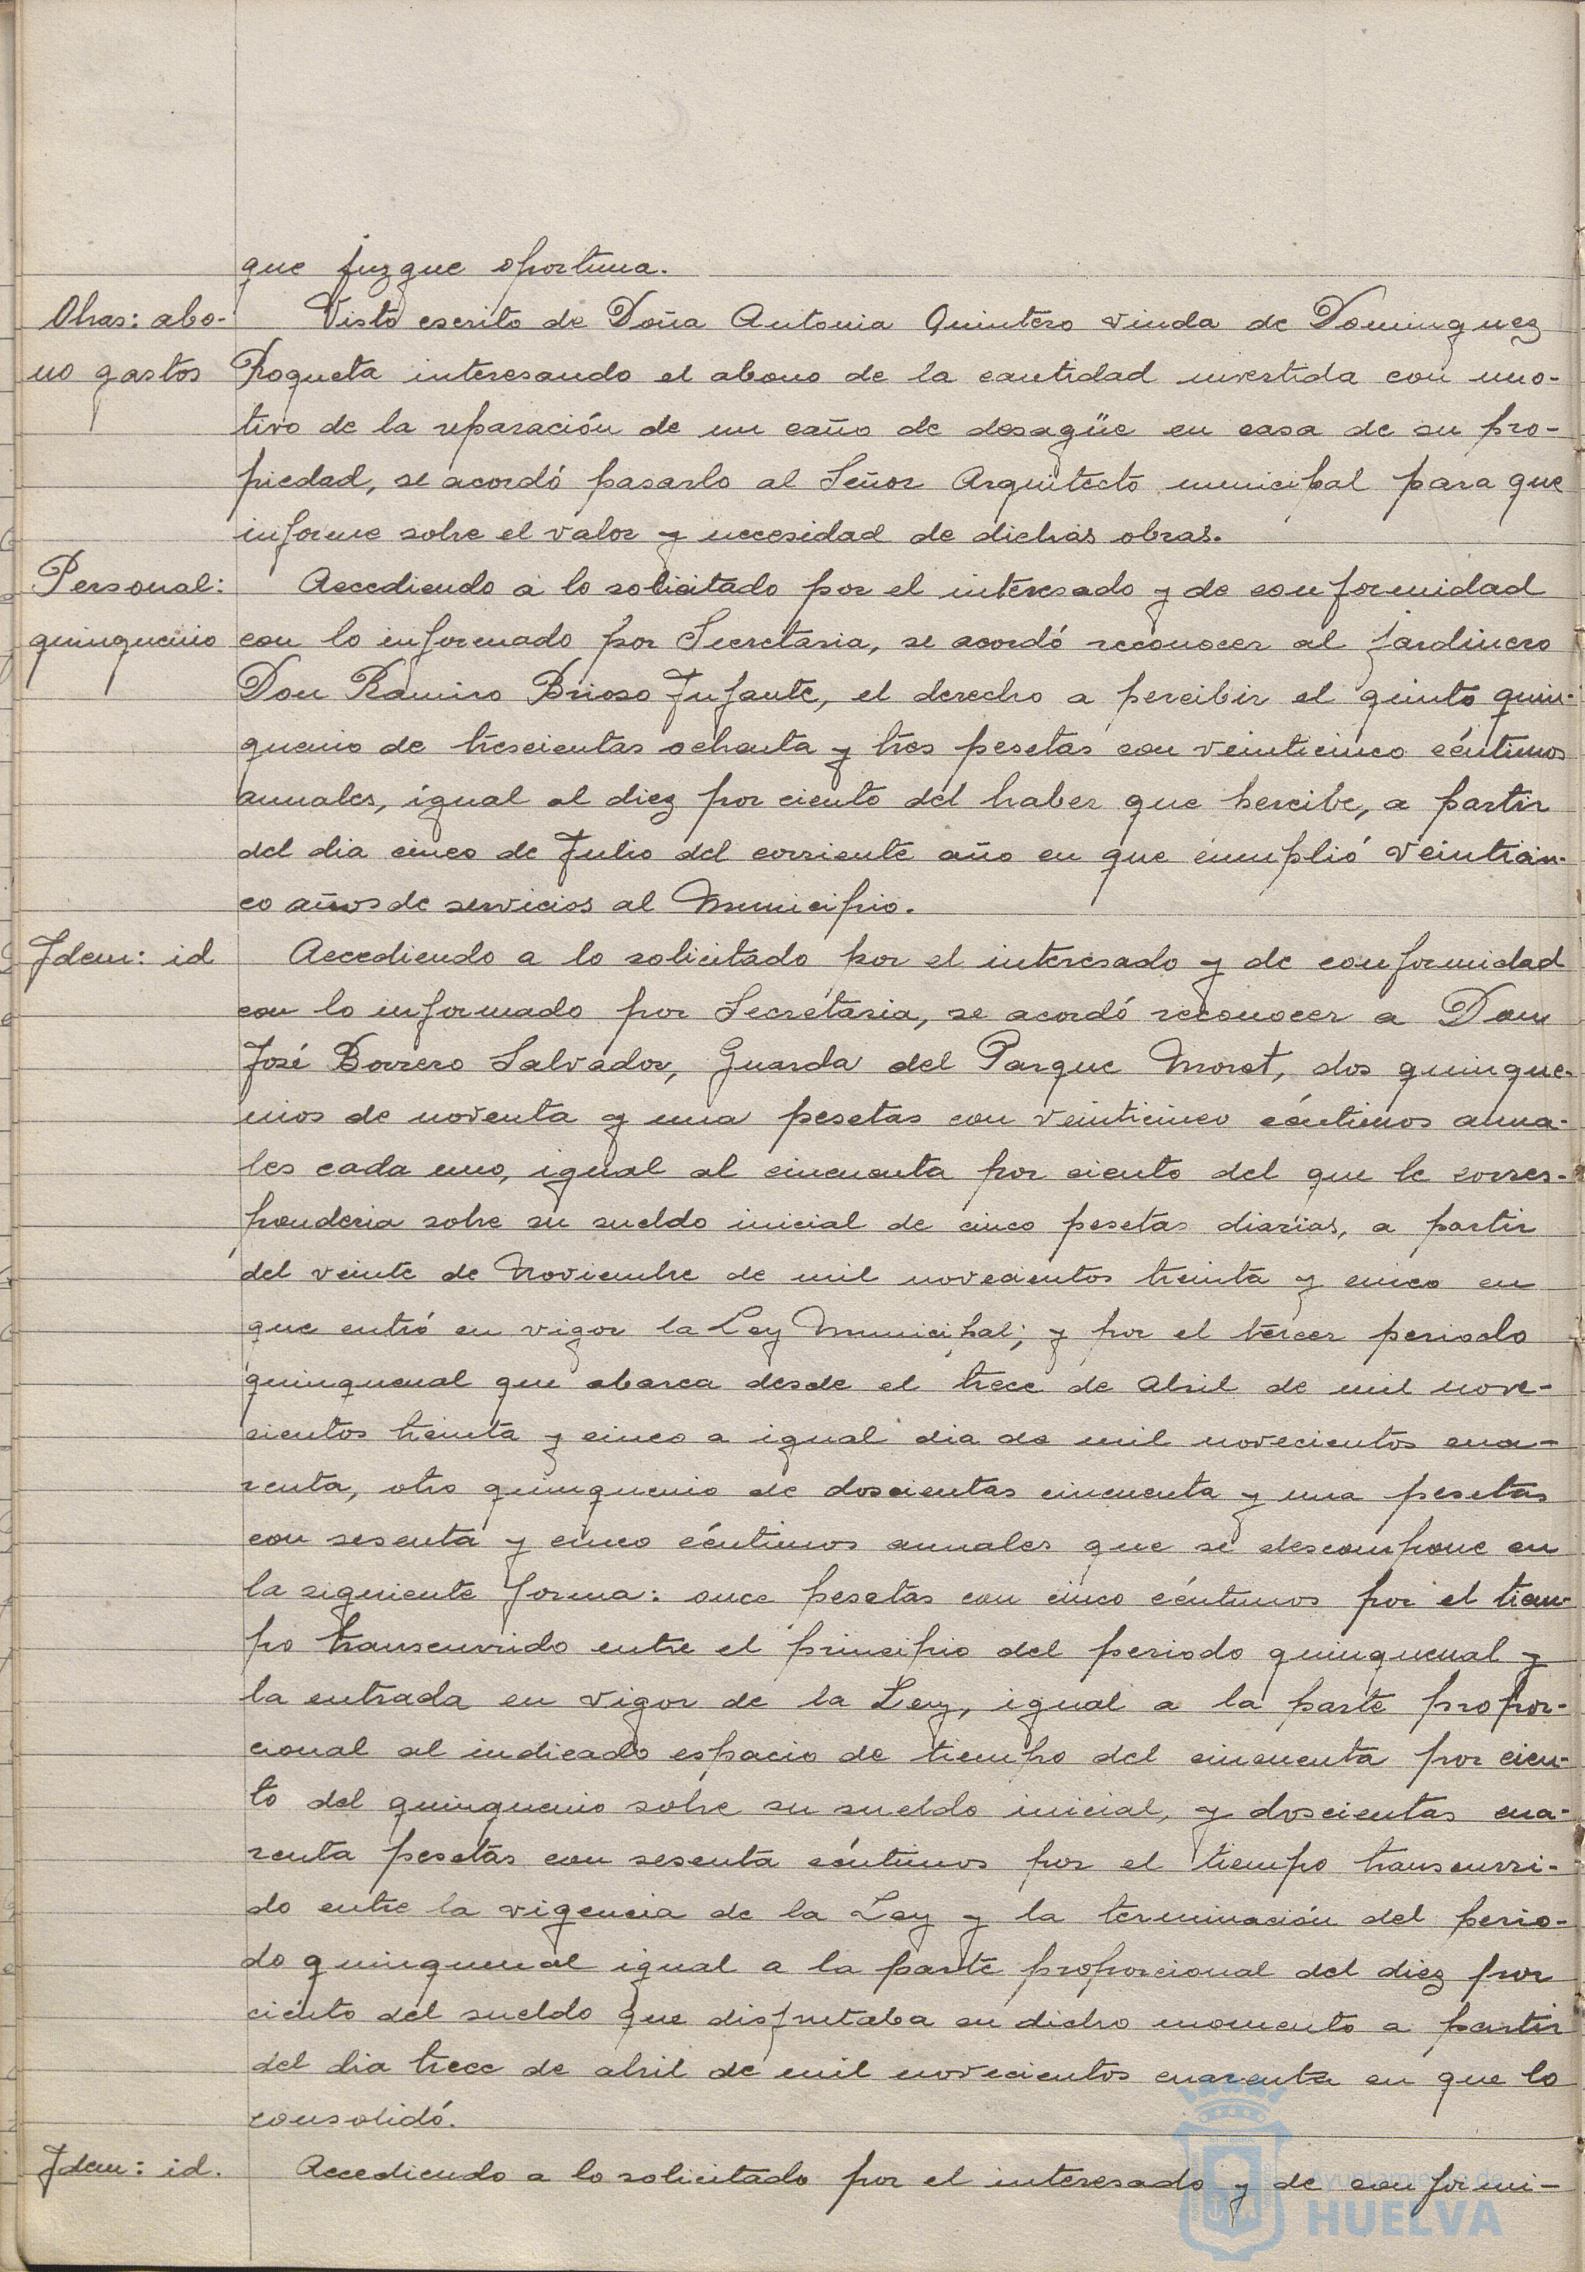 que juzgue oportuna.
Obras: abo-
no gastos
Visto escrito de Doña Antonia Quintero viuda de Dominguez
Roqueta interesando el abono de la cantidad invertida con mo-
tivo de la reparación de un caño de desagüe en casa de su pro-
piedad, se acordó pasarlo al Señor Arquitecto municipal para que
informe sobre el valor y necesidad de dichas obras.
Personal:
quinquenio
Accediendo a lo solicitado por el interesado y de conformidad
con lo informado por Secretaria, se acordó reconocer al jardinero
Don Ramiro Brioso Infante, el derecho a percibir el quinto quin-
quenio de trescientas ochenta y tres pesetas con veinticinco céntimos
anuales, igual al diez por ciento del haber que percibe, a partir
del dia cinco de Julio del corriente año en que cumplió veintcin-
co años de servicios al Municipio.
Idem: id
Accediendo a lo solicitado por el interesado y de conformidad
con lo informado por Secretaria, se acordó reconocer a Don
José Borrero Salvador, Guarda del Parque Moret, dos quinque-
nios de noventa y una pesetas con veinticinco céntimos anua-
les cada uno, igual al cincuenta por ciento del que le corres-
ponderia sobre su sueldo inicial de cinco pesetas diarias, a partir
del veinte de Noviembre de mil novecientos treinta y cinco en
que entró en vigor la Ley Municipal; y por el tercer periodo
quinquenal que abarca desde el trece de Abril de mil nove-
cientos treinta y cinco a igual dia de mil novecientos cua-
renta, otro quinquenio de doscientas cincuenta y una pesetas
con sesenta y cinco céntimos anuales que se descompone en
la siguiente forma: once pesetas con cinco céntimos por el tiem-
po transcurrido entre el principio del periodo quinquenal y
la entrada en vigor de la Ley, igual a la parte propor-
cional al indicado espacio de tiempo del cincuenta por cien-
to del quinquenio sobre su sueldo inicial, y doscientas cua-
renta pesetas con sesenta céntimos por el tiempo transcurri-
do entre la vigencia de la Ley y la terminación del perio-
do quinquenal igual a la parte proporcional del diez por
ciento del sueldo que disfrutaba en dicho momento a partir
del dia trece de abril de mil novecientos cuarenta en que lo
consolidó.
Idem: id.
Accediendo a lo solicitado por el interesado y de conformi-
Ayuntamiento de
HUELVA